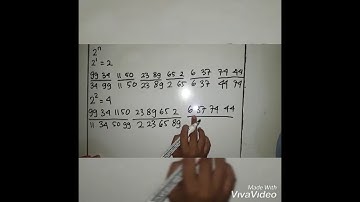 2ⁿ
2¹ = 2
99 34 11 50 23 89 65 2 6 37 74 44
34 99 11 50 23 89 2 65 6 37 44 74
2² = 4
99 34 11 50 23 89 65 2 6 37 74 44
11 34 50 99 2 23 65 89
Made With
VivaVideo